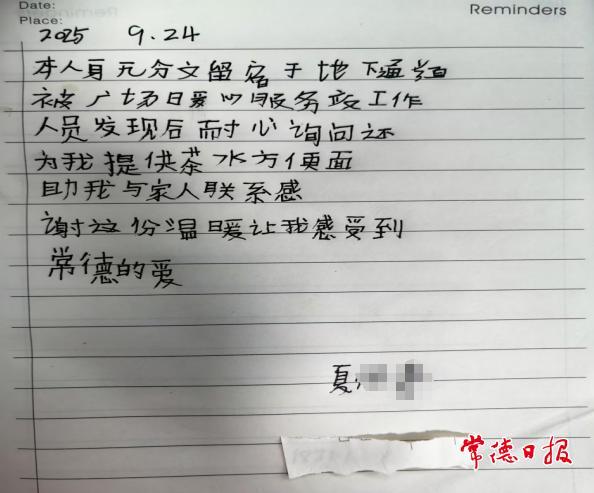 Date:
Place:
Reminders
2025 9.24
本人身无分文留宿于地下通道
被广场日爱心服务站工作
人员发现后耐心询问还
为我提供茶水方便面
助我与家人联系感
谢这份温暖让我感受到
常德的爱
夏
常德日报